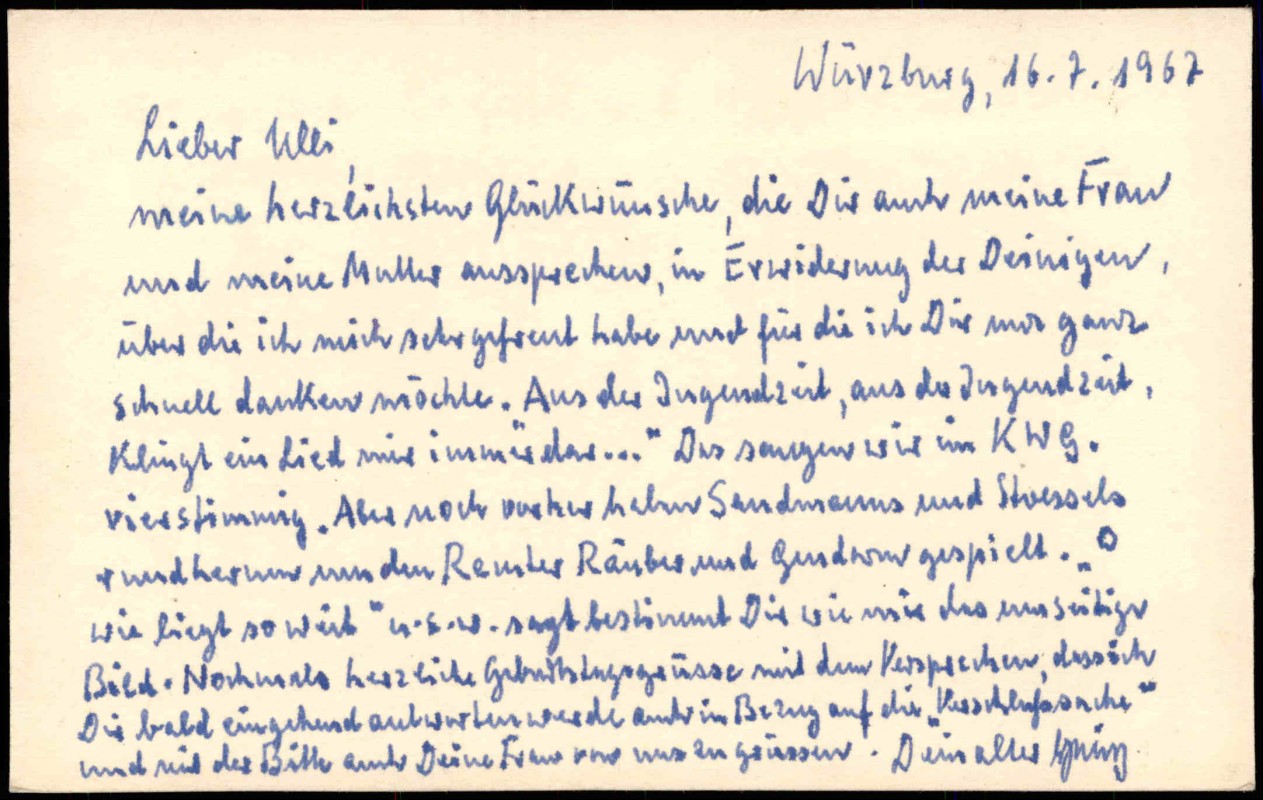 Würzburg, 16.7.1967
Lieber Ulli,
meine herzlichsten Glückwünsche, die Dir auch meine Frau
und meine Mutter aussprechen, in Erwiderung der Deinigen,
über die ich mich sehr gefreut habe und für die ich Dir nur ganz
schnell danken möchte. Aus der Jugendzeit, aus der Jugendzeit,
Klingt ein Lied mir immerdar..." Das sangen wir im KWG.
vierstimmig. Aber noch vorher haben Sandmanns und Stoessels
rundherum um den Remter Räuber und Gendarm gespielt. „O
wie liegt so weit" u.s.w. sagt bestimmt Dir wie mir das umseitige
Bild. Nochmals herzliche Geburtstagsgrüsse mit dem Versprechen, dass ich
Dir bald eingehend antworten werde auch in Bezug auf die
und mit der Bitte auch Deine Frau von uns zu grüssen. Dein alter